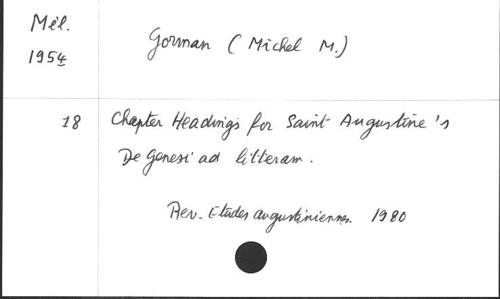 Mél.
1954
Gorman (Michel M.)
18
Chapter Headings for Saint Augustine's
De Genesi ad litteram.
Rev. Etudes augustiniennes. 1980